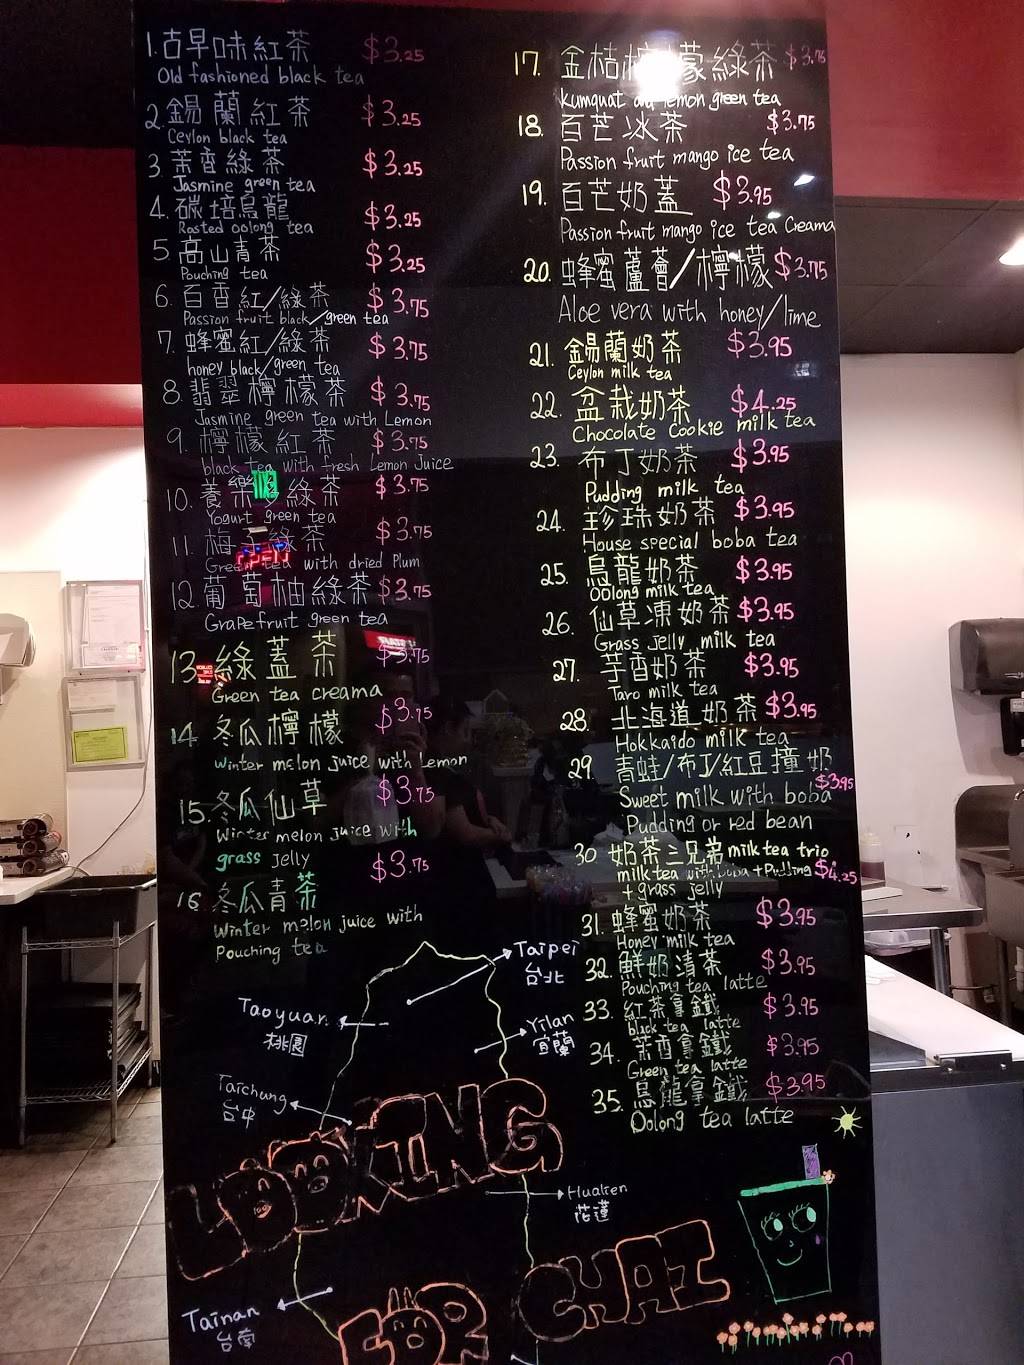 1. 古早味紅茶 $3.25
Old fashioned black tea
2. 錫蘭紅茶 $3.25
Ceylon black tea
3. 茉香綠茶 $3.25
Jasmine green tea
4. 碳培烏龍 $3.25
Rosted oolong tea
5. 高山青茶 $3.25
Pouching tea
6. 百香紅/綠茶 $3.75
Passion fruit black/green tea
7. 蜂蜜紅/綠茶 $3.75
honey black/green tea
8. 翡翠檸檬茶 $3.75
Jasmine green tea with Lemon
9. 檸檬紅茶 $3.75
black tea with fresh Lemon Juice
10. 養樂多綠茶 $3.75
Yogurt green tea
11. 梅子綠茶 $3.75
Green tea with dried Plum
12. 葡萄柚綠茶 $3.75
Grapefruit green tea
13. 綠蓋茶 $3.75
Green tea creama
14. 冬瓜檸檬 $3.75
Winter melon juice with Lemon
15. 冬瓜仙草 $3.75
Winter melon juice with
grass jelly
16. 冬瓜青茶 $3.75
Winter melon juice with
Pouching tea
17. 金桔檸檬綠茶 $3.75
kumquat and lemon green tea
18. 百芒冰茶 $3.75
Passion fruit mango ice tea
19. 百芒奶蓋 $3.95
Passion fruit mango ice tea Creama
20. 蜂蜜蘆薈/檸檬 $3.75
Aloe vera with honey/lime
21. 錫蘭奶茶 $3.95
Ceylon milk tea
22. 盆栽奶茶 $4.25
Chocolate Cookie milk tea
23. 布丁奶茶 $3.95
Pudding milk tea
24. 珍珠奶茶 $3.95
House special boba tea
25. 烏龍奶茶 $3.95
Oolong milk tea
26. 仙草凍奶茶 $3.95
Grass jelly milk tea
27. 芋香奶茶 $3.95
Taro milk tea
28. 北海道奶茶 $3.95
Hokkaido milk tea
29 青蛙/布丁/紅豆撞奶 $3.95
Sweet milk with boba
Pudding or red bean
30 奶茶三兄弟 milk tea trio
milk tea with boba + Pudding $4.25
+ grass jelly
31. 蜂蜜奶茶 $3.95
Honey milk tea
32. 鮮奶清茶 $3.95
Pouching tea latte
33. 紅茶拿鐵 $3.95
black tea latte
34. 茉香拿鐵 $3.95
Green tea latte
35. 烏龍拿鐵 $3.95
Oolong tea latte
Taipei
台北
Taoyuan
桃園
Yilan
宜蘭
Taichung
台中
LOOKING
Hualien
花蓮
FOR CHAI
Tainan
台南